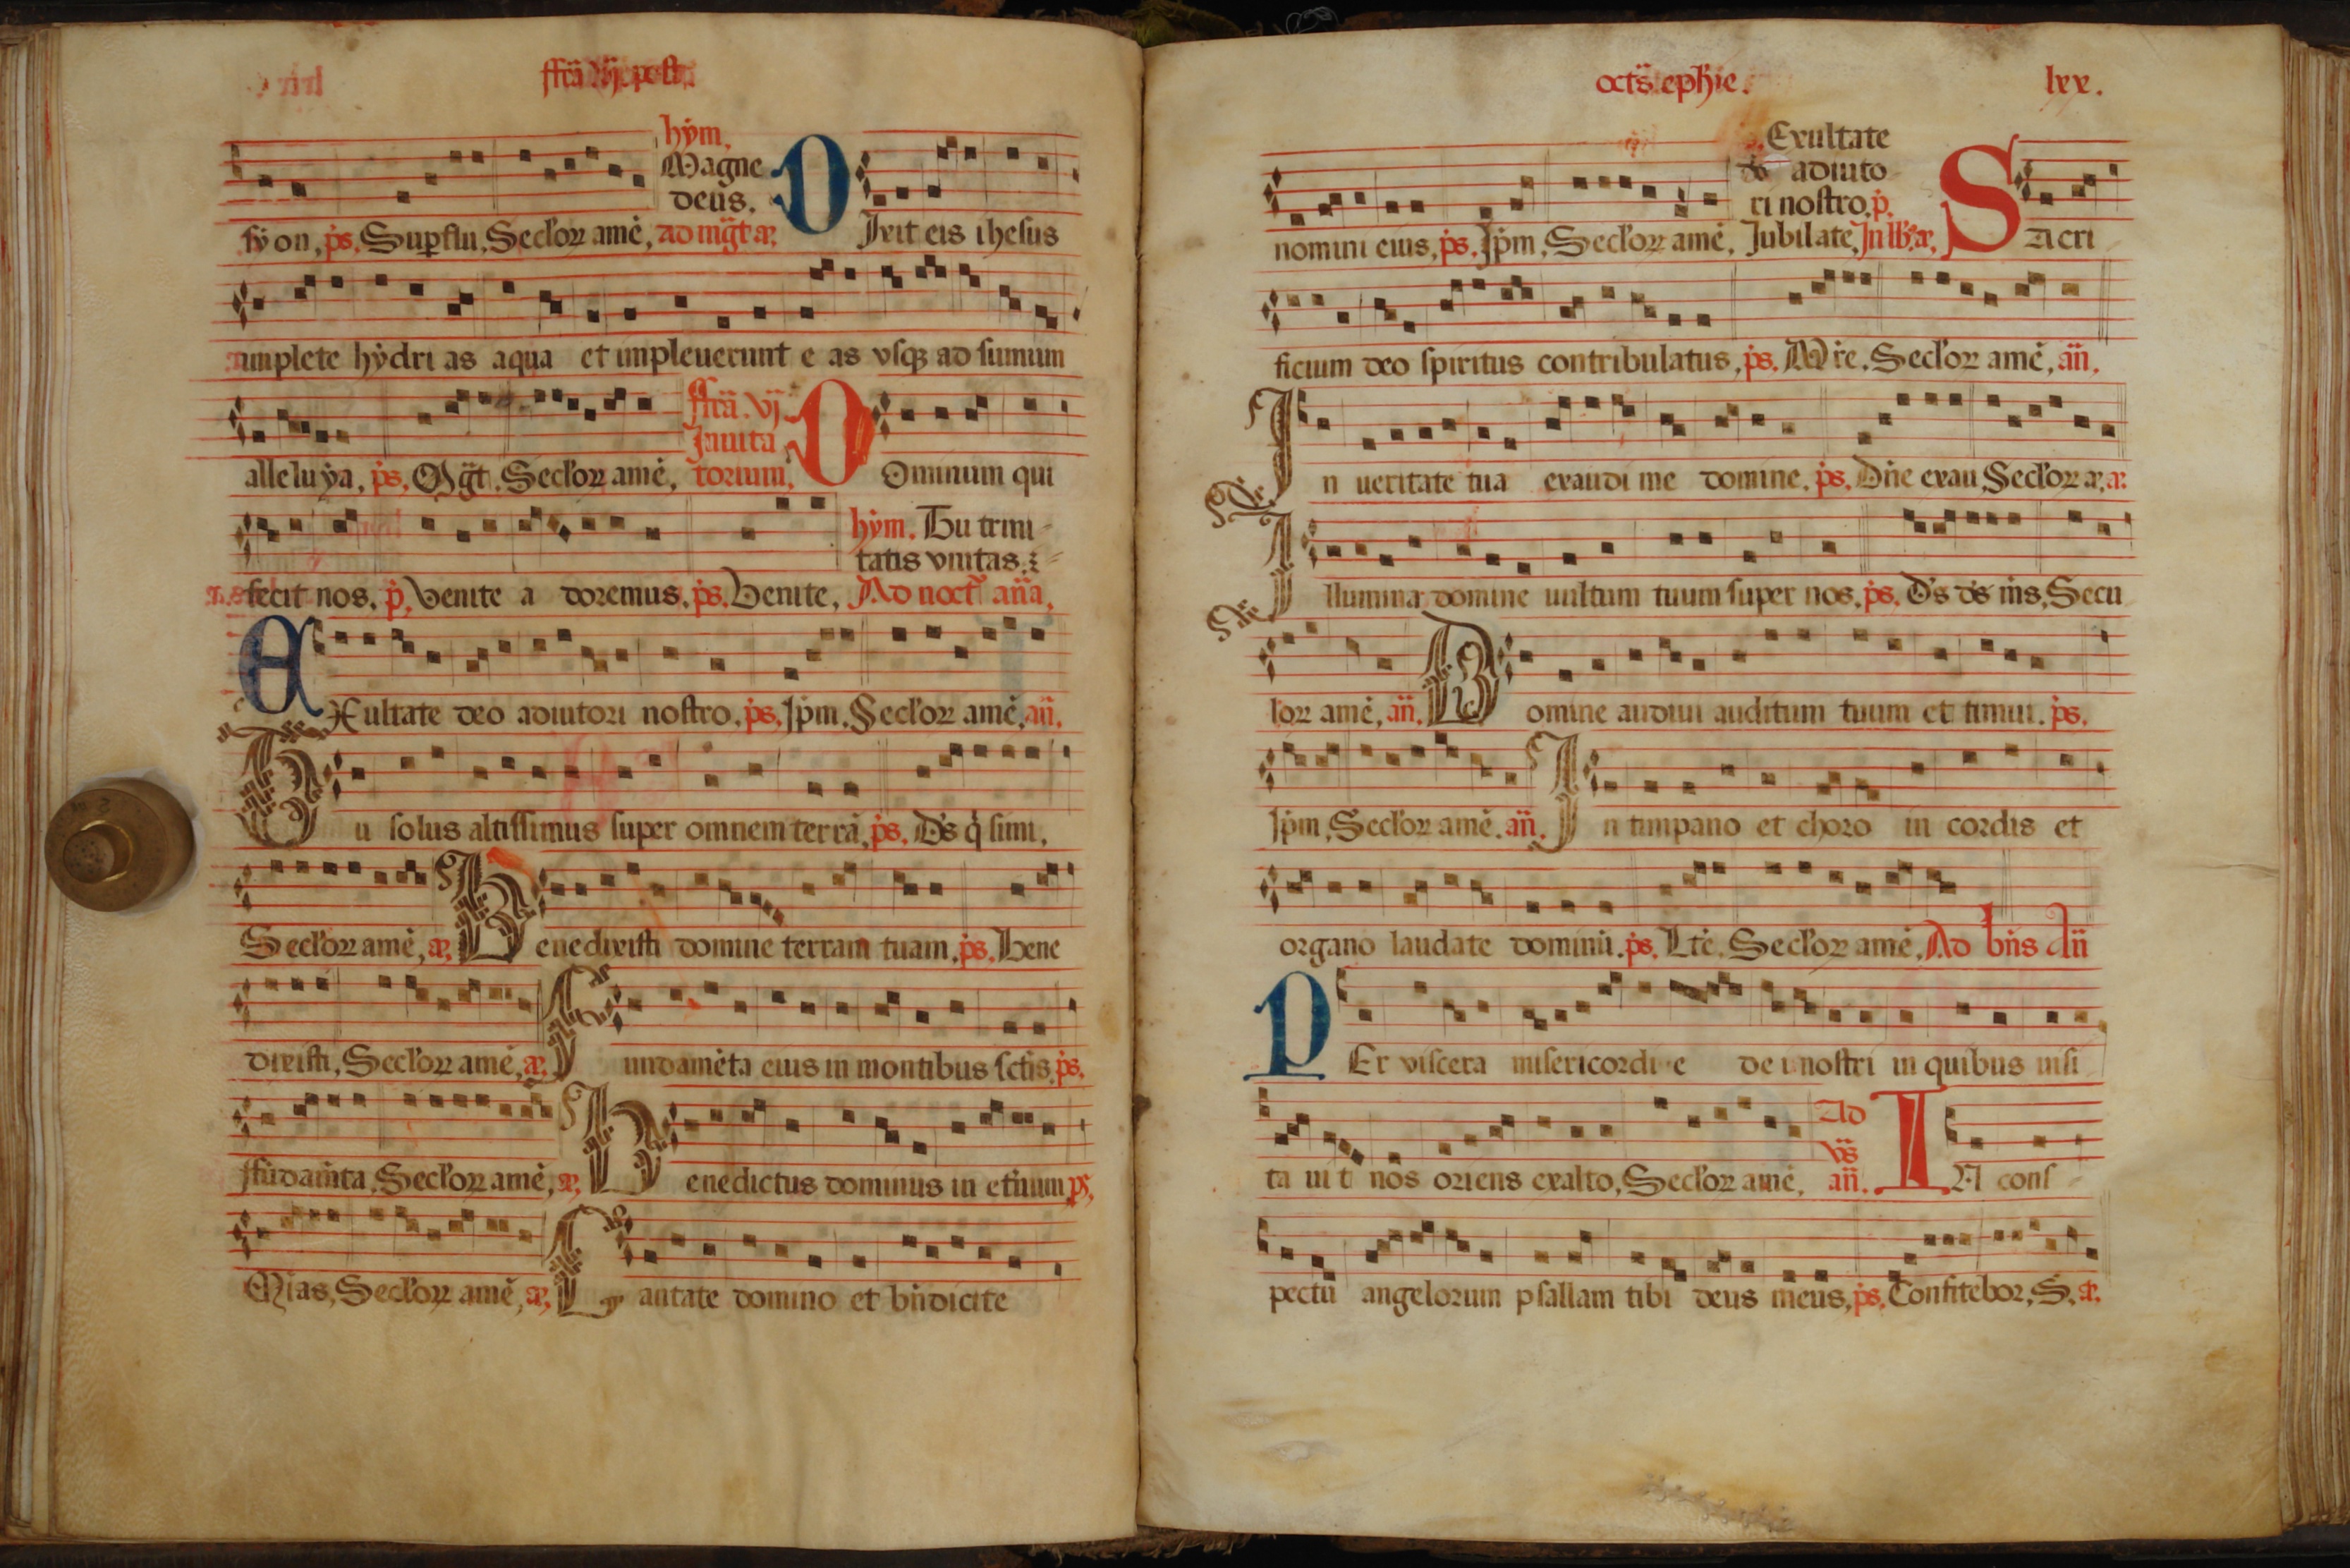 ffrã vj post
hẏm.
Magne
deus.
sẏ on, p̄s. Sup̱ flu. Seclꝛ amē, ad mg̃t ã,
DIxit eis ihesus
implete hẏdri as aqua et impleuerunt e as vsqꝫ ad sumum
ffrã. vj
Inuita
alleluẏa, p̄s. Mg̃t. Seclꝛ amē, torium,
DOminum qui
hẏm. Tu trini
tatis vnitas.
fecit nos. p̄. Venite a doremus. p̄s. Venite, Ad noct an̄a,
EXultate deo adiutori nostro. p̄s. Ip̄m. Seclꝛ amē, an̄.
Tu solus altissimus super omnem terrā. p̄s. D̄s q̇ simi.
Seclꝛ amē, ã, Benedixisti domine terram tuam. p̄s. Bene
dixisti, Seclꝛ amē, ã, Fundamēta eius in montibus sctis. p̄s.
ffūdam̄ta. Seclꝛ amē, ã, Benedictus dominus in et̄num p̄s,
Mias, Seclꝛ amē, ã, Cantate domino et bn̄dicite
octs̄ ephīe.
lxx.
Exultate
do adiuto
ri nostro. p̄.
nomini eius, p̄s. Ip̄m, Seclꝛ amē, Iubilate, In lb̄ꝫ ã, SAcri
ficium deo spiritus contribulatus, p̄s. Mr̄e. Seclꝛ amē, an̄,
In ueritate tua exaudi me domine. p̄s. Dn̄e exau, Seclꝛ a, ã
Illumina domine uultum tuum super nos. p̄s. D̄s d̄s m̄s, Secu
loꝝ amē, an̄. Domine audiui auditum tuum et timui. p̄s.
Ip̄m, Seclꝛ amē. an̄. In timpano et choro in cordis et
organo laudate dominū. p̄s. Ltē. Seclꝛ amē. Ad bn̄s an̄
PEr viscera misericordi e de i nostri in quibus uisi
Ad
vs̄
ta ui t nos oriens exalto, Seclꝛ amē, an̄. IN cons
pectu angelorum psallam tibi deus meus, p̄s. Confitebor, S. ã.